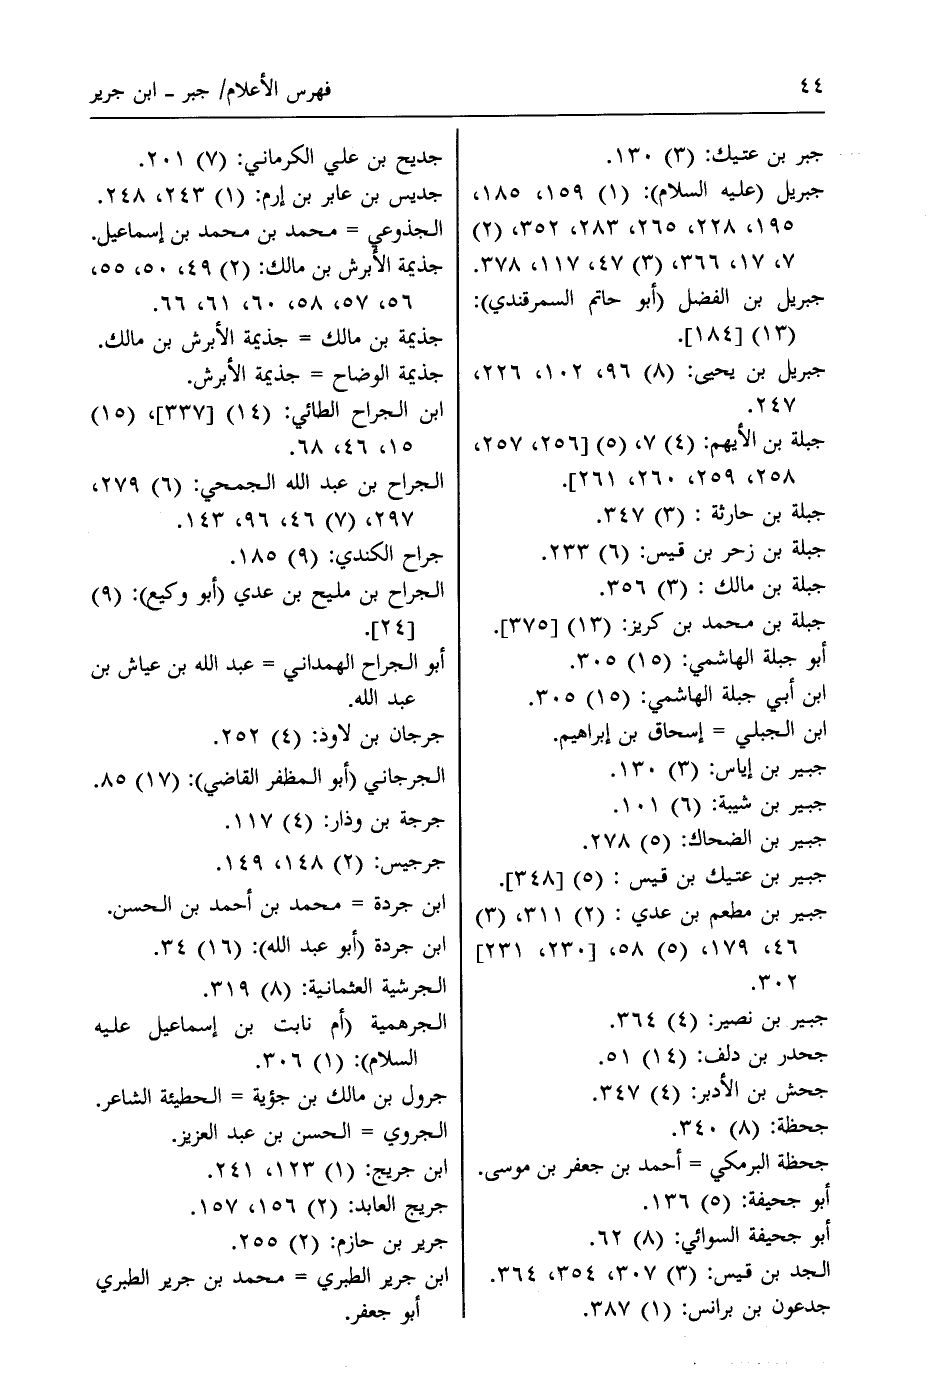 ٤٤
فهرس الأعلام/ جبر ـ ابن جرير
جبر بن عتيك: (٣) ١٣٠.
جبريل (عليه السلام): (١) ١٥٩، ١٨٥،
١٩٥، ٢٢٨، ٢٦٥، ٢٨٣، ٣٥٢، (٢)
٧، ١٧، ٣٦٦، (٣) ٤٧، ١١٧، ٣٧٨.
جبريل بن الفضل (أبو حاتم السمرقندي):
(١٣) [١٨٤].
جبريل بن يحيى: (٨) ٩٦، ١٠٢، ٢٢٦،
٢٤٧.
جبلة بن الأيهم: (٤) ٧، (٥) [٢٥٦، ٢٥٧،
٢٥٨، ٢٥٩، ٢٦٠، ٢٦١].
جبلة بن حارثة : (٣) ٣٤٧.
جبلة بن زحر بن قيس: (٦) ٢٣٣.
جبلة بن مالك : (٣) ٣٥٦.
جبلة بن محمد بن كريز: (١٣) [٣٧٥].
أبو جبلة الهاشمي: (١٥) ٣٠٥.
ابن أبي جبلة الهاشمي: (١٥) ٣٠٥.
ابن الجبلي = إسحاق بن إبراهيم.
جبير بن إياس: (٣) ١٣٠.
جبير بن شيبة: (٦) ١٠١.
جبير بن الضحاك: (٥) ٢٧٨.
جبير بن عتيك بن قيس : (٥) [٣٤٨].
جبير بن مطعم بن عدي : (٢) ٣١١، (٣)
٤٦، ١٧٩، (٥) ٥٨، [٢٣٠، ٢٣١]
٣٠٢.
جبير بن نصير: (٤) ٣٦٤.
جحدر بن دلف: (١٤) ٥١.
جحش بن الأدبر: (٤) ٣٤٧.
جحظة: (٨) ٣٤٠.
جحظة البرمكي = أحمد بن جعفر بن موسى.
أبو جحيفة: (٥) ١٣٦.
أبو جحيفة السوائي: (٨) ٦٢.
الجد بن قيس: (٣) ٣٠٧، ٣٥٤، ٣٦٤.
جدعون بن برانس: (١) ٣٨٧.
جديح بن علي الكرماني: (٧) ٢٠١.
جديس بن عابر بن إرم: (١) ٢٤٣، ٢٤٨.
الجذوعي = محمد بن محمد بن إسماعيل.
جذيمة الأبرش بن مالك: (٢) ٤٩، ٥٠، ٥٥،
٥٦، ٥٧، ٥٨، ٦٠، ٦١، ٦٦.
جذيمة بن مالك = جذيمة الأبرش بن مالك.
جذيمة الوضاح = جذيمة الأبرش.
ابن الجراح الطائي: (١٤) [٣٣٧]، (١٥)
١٥، ٤٦، ٦٨.
الجراح بن عبد الله الجمحي: (٦) ٢٧٩،
٢٩٧، (٧) ٤٦، ٩٦، ١٤٣.
جراح الكندي: (٩) ١٨٥.
الجراح بن مليح بن عدي (أبو وكيع): (٩)
[٢٤].
أبو الجراح الهمداني = عبد الله بن عياش بن
عبد الله.
جرجان بن لاوذ: (٤) ٢٥٢.
الجرجاني (أبو المظفر القاضي): (١٧) ٨٥.
جرجة بن وذار: (٤) ١١٧.
جرجيس: (٢) ١٤٨، ١٤٩.
ابن جردة = محمد بن أحمد بن الحسن.
ابن جردة (أبو عبد الله): (١٦) ٣٤.
الجرشية العثمانية: (٨) ٣١٩.
الجرهمية (أم نابت بن إسماعيل عليه
السلام): (١) ٣٠٦.
جرول بن مالك بن جؤية = الحطيئة الشاعر.
الجروي = الحسن بن عبد العزيز.
ابن جريج: (١) ١٢٣، ٢٤١.
جريج العابد: (٢) ١٥٦، ١٥٧.
جرير بن حازم: (٢) ٢٥٥.
ابن جرير الطبري = محمد بن جرير الطبري
أبو جعفر.